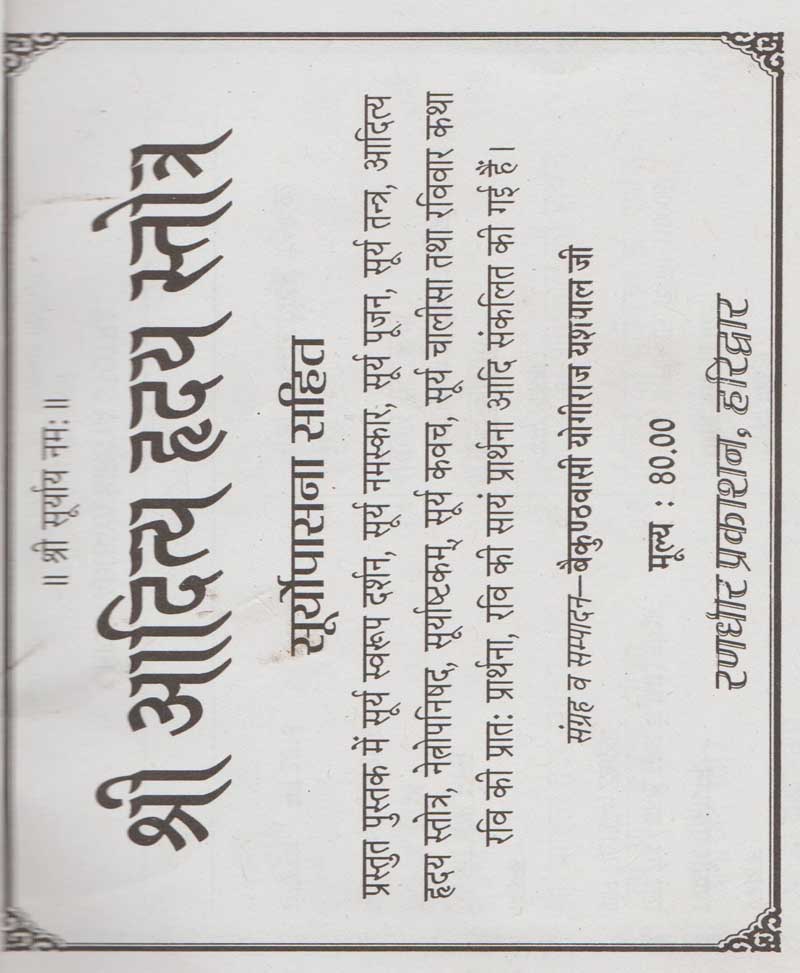 ॥ श्री सूर्याय नमः ॥
श्री आदित्य हृदय स्तोत्र
सूर्योपासना सहित
प्रस्तुत पुस्तक में सूर्य स्वरूप दर्शन, सूर्य नमस्कार, सूर्य पूजन, सूर्य तन्त्र, आदित्य
हृदय स्तोत्र, नेत्रोपनिषद्, सूर्याष्टकम्, सूर्य कवच, सूर्य चालीसा तथा रविवार कथा
रवि की प्रातः प्रार्थना, रवि की सायं प्रार्थना आदि संकलित की गई हैं।
संग्रह व सम्पादन—बैकुण्ठवासी योगीराज यशपाल जी
मूल्य : 80.00
रणधीर प्रकाशन, हरिद्वार